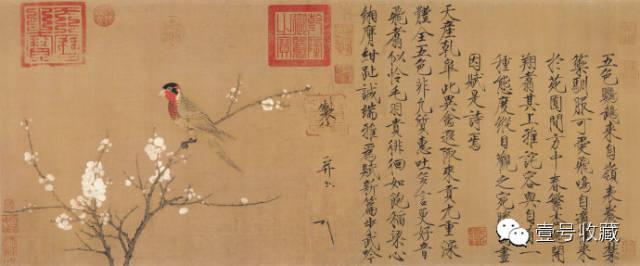 五色鸚鵡來自嶺表養之禁
籞馴服可愛飛鳴自適往來
於苑囿間方中春繁杏遍開
翔翥其上雅詫容與自一
種態度縱目觀之宛勝畫
因賦是詩焉
天產乾皋此異禽遐陬來貢九重深
體全五色非凡質惠吐多言更好音
飛翥似憐毛羽貴徘徊如飽稻粱心
緗膺紺趾誠端雅為賦新篇步武吟
製
壹号收藏